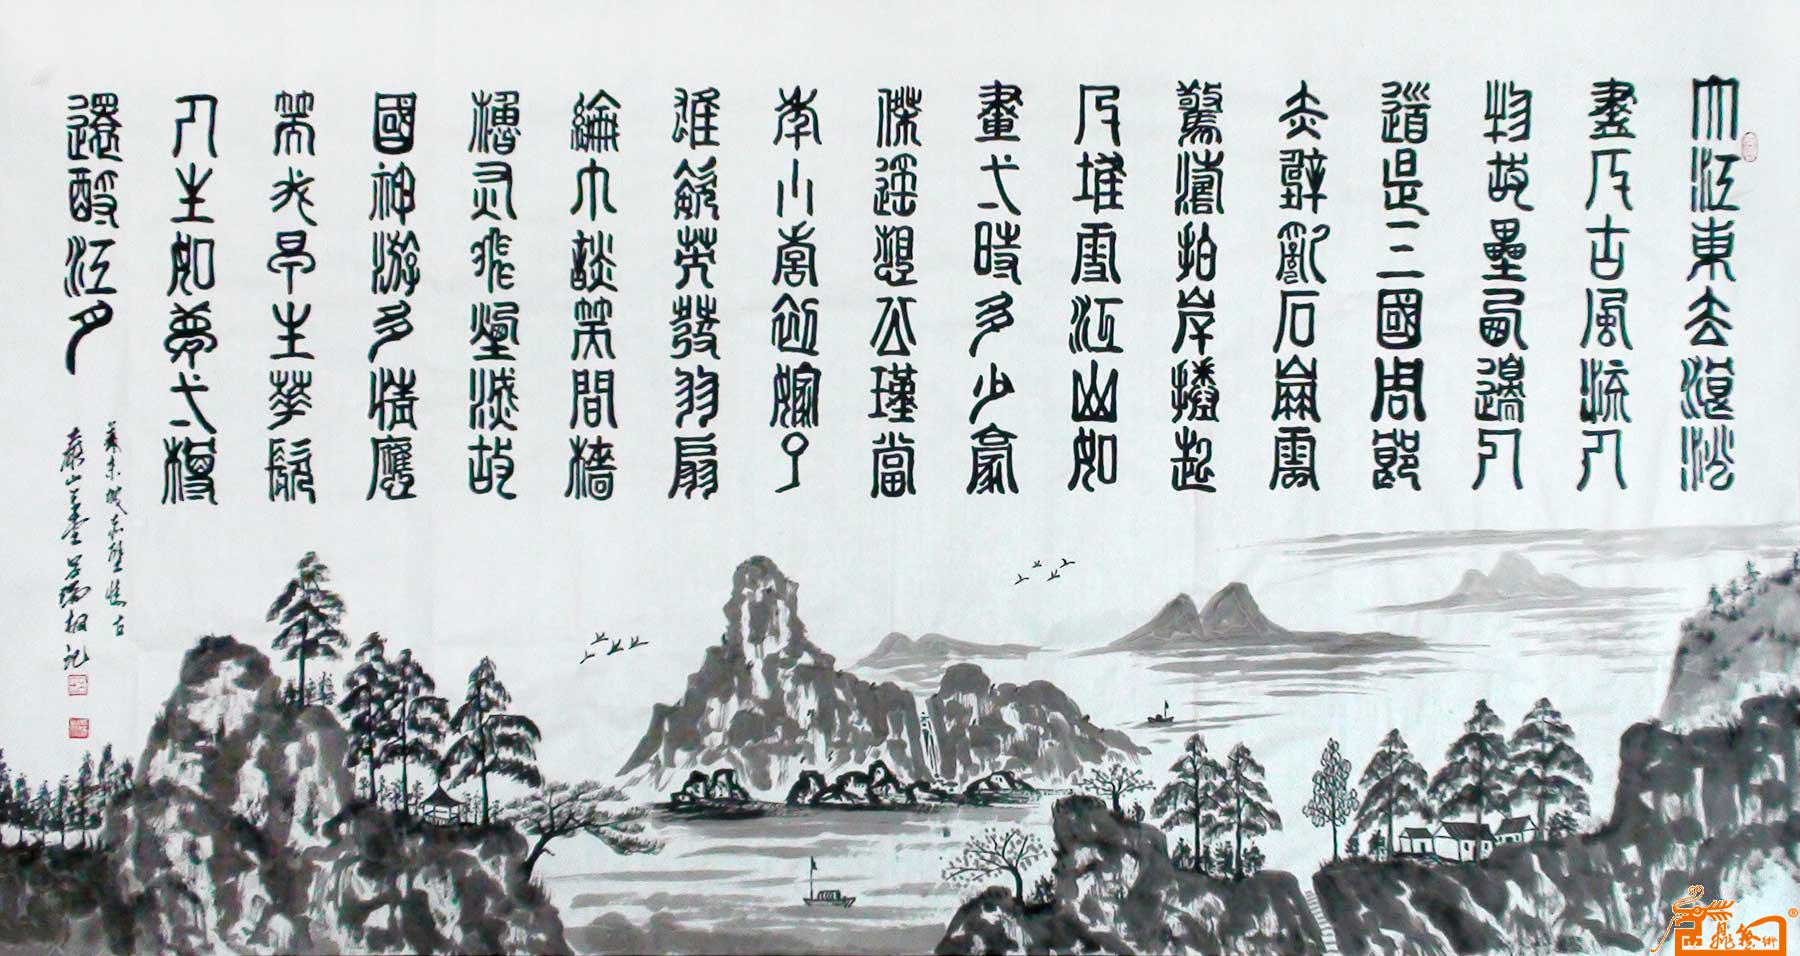 大江東去浪淘
盡千古風流人
物故壘西邊人
道是三國周郎
赤壁亂石崩雲
驚濤拍岸捲起
千堆雪江山如
畫一時多少豪
傑遙想公瑾當
年小喬初嫁了
雄姿英發羽扇
綸巾談笑間檣
櫓灰飛煙滅故
國神游多情應
笑我早生華髮
人生如夢一樽
還酹江月
蘇東坡赤壁懷古